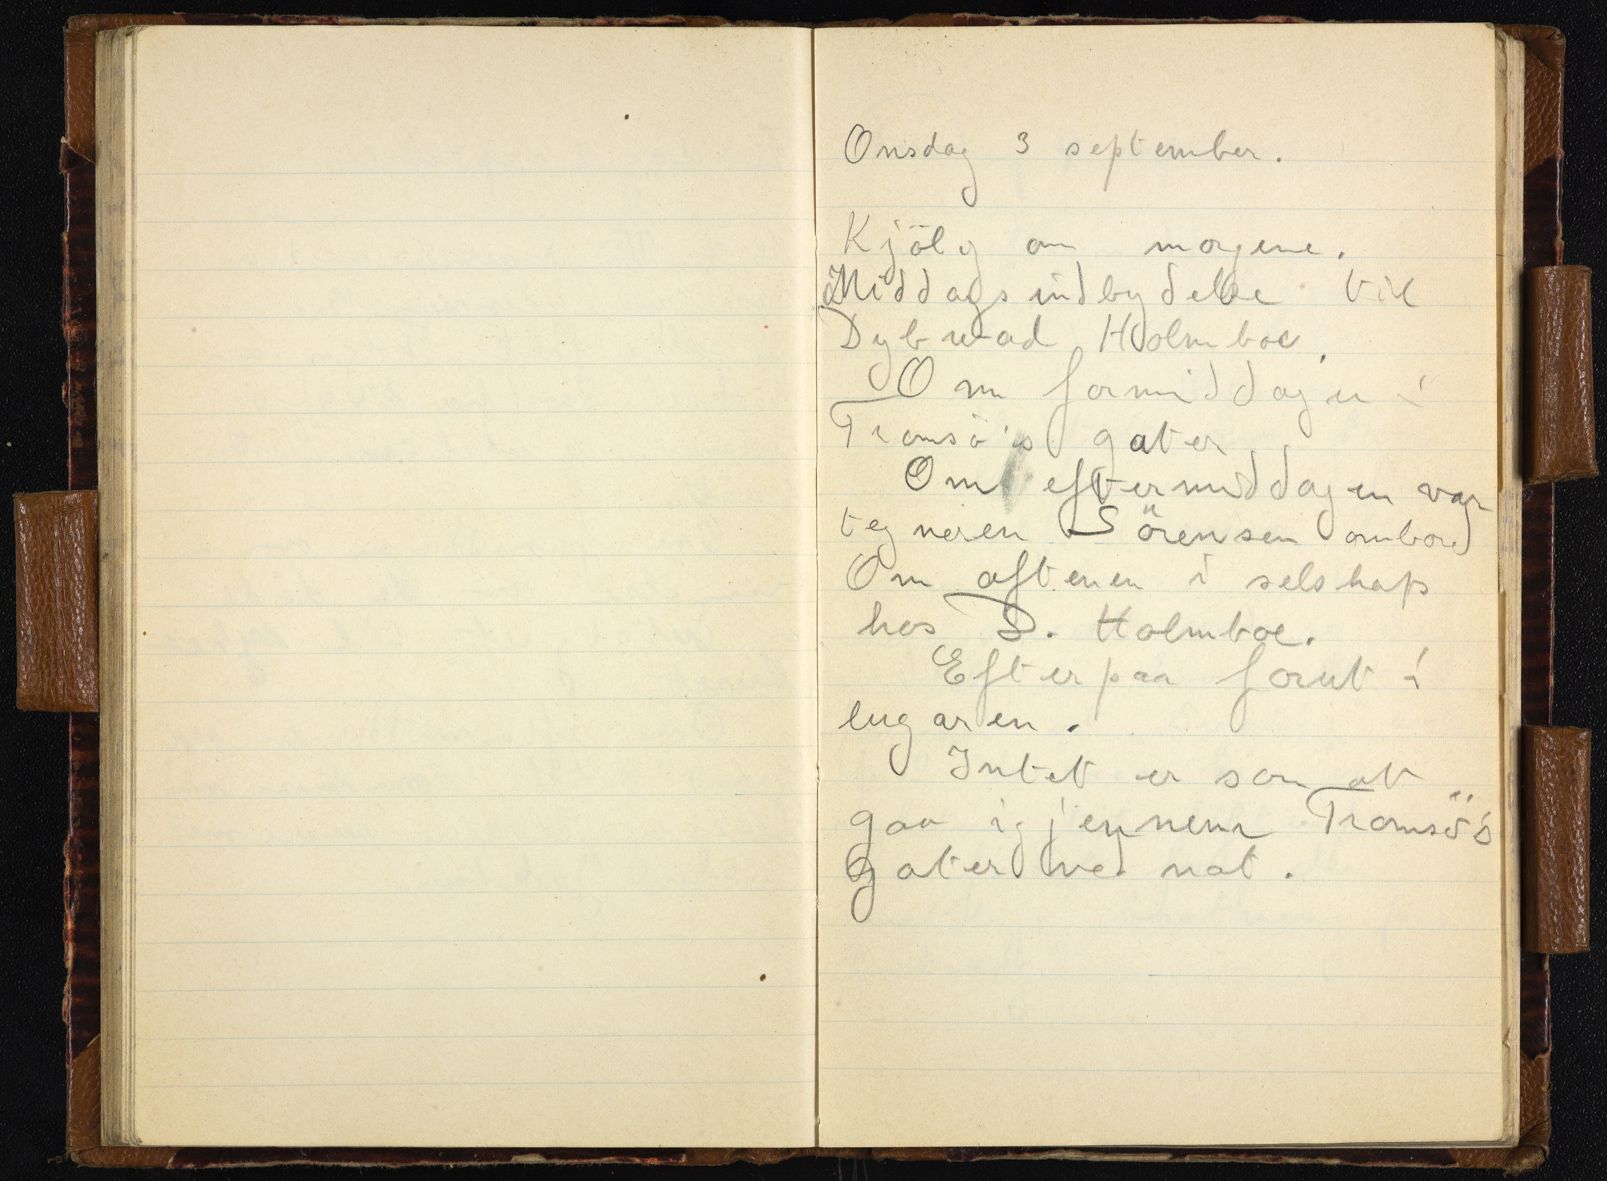 Onsdag 3 september.
Kjölg om morgene.
Middagsindbydelse til
Dybwad Holmboe.
Om formiddagen i
Tromsö's gater
Om eftermiddagen var
tegneren Sörensen ombord
Om aftenen i selskap
hos D. Holmboe.
Efterpaa forut i
lugaren.
Intet er som at
gaa igjennem Tromsö's
gater ved nat.